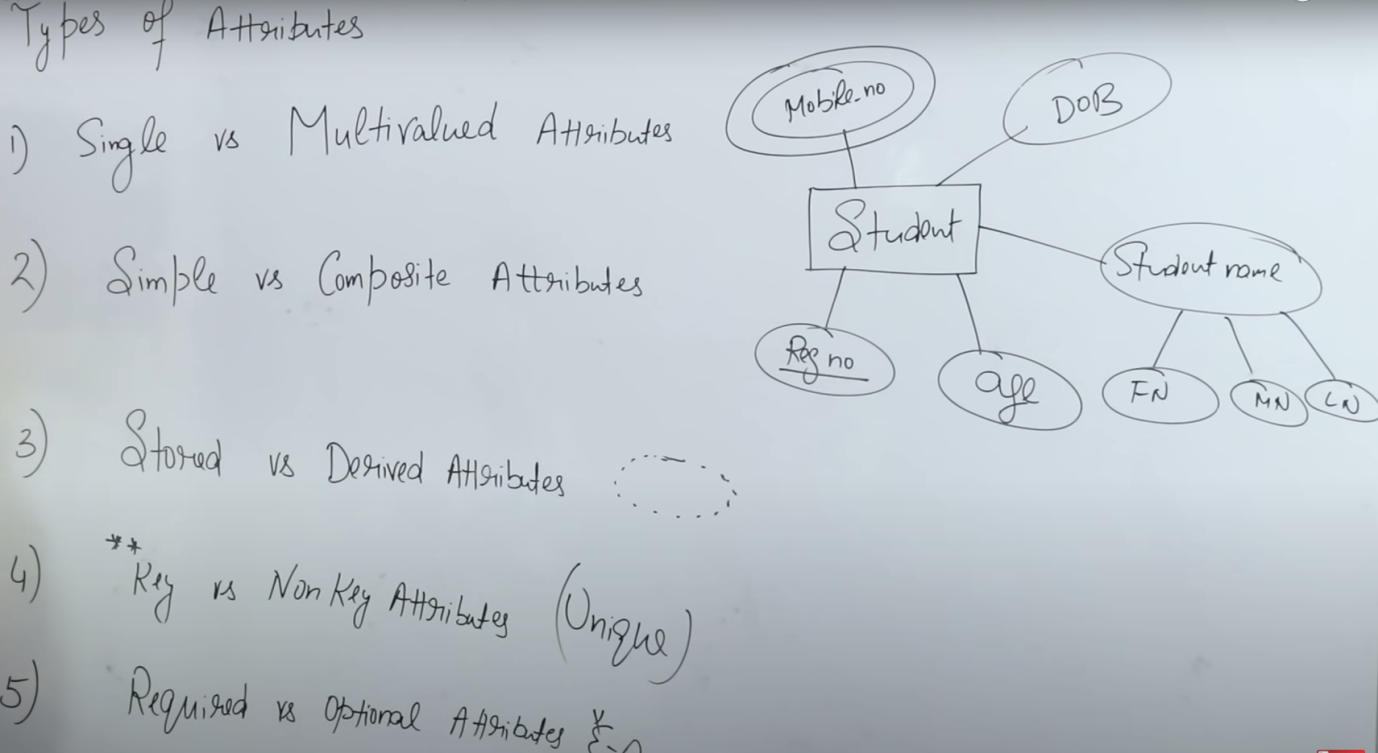 Types of Attributes
1) Single vs Multivalued Attributes
2) Simple vs Composite Attributes
3) Stored vs Derived Attributes
4) **Key vs Non Key Attributes (Unique)
5) Required vs Optional Attributes *
Mobile-no
DOB
Student
Student name
Reg no
age
FN
MN
LN